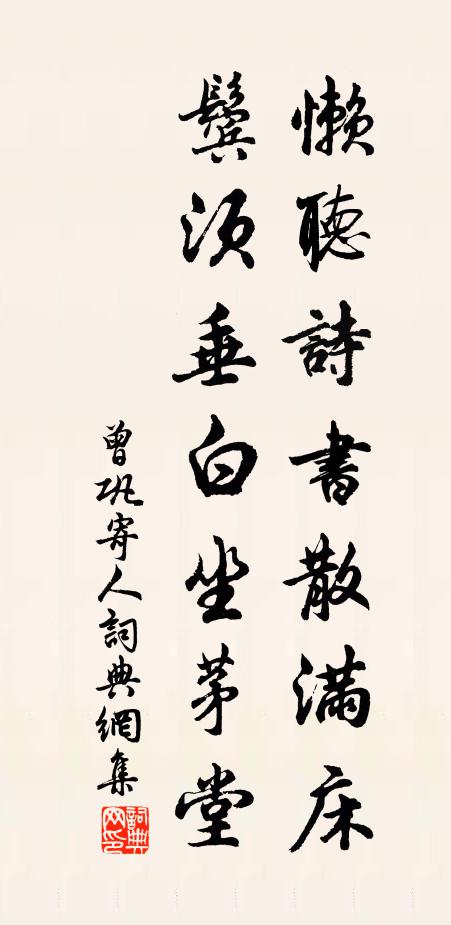 懶聽詩書散滿床
鬢須垂白坐茅堂
曾巩寄人詞典網集
詞典網印